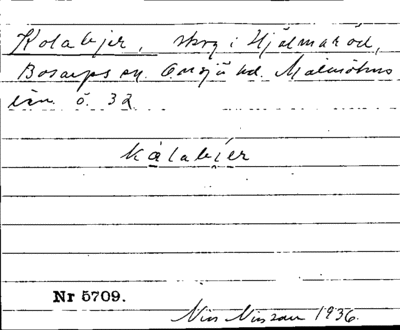 Kolabjer, skog i Hjälmaröd,
Bosarps sn. Onsjö hd. Malmöhus
län. ö. 32
kålabjér
Nr 5709.
Nils Nilsson 1936.